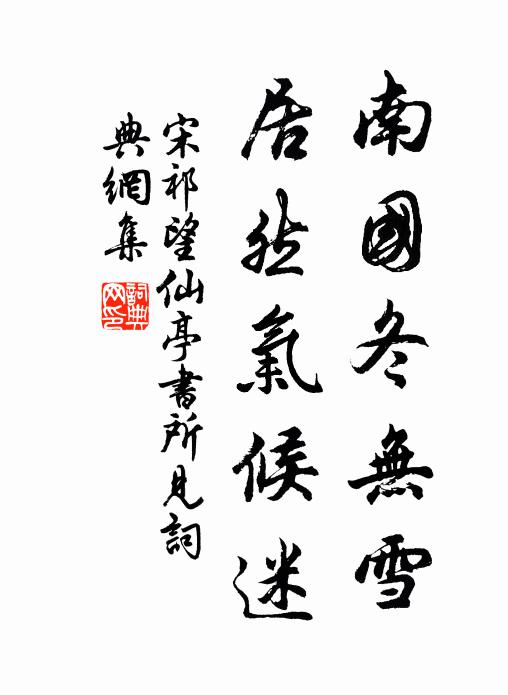 南國冬無雪
居然氣候迷
宋祁望仙亭書所見詞
典網集
詞典網印